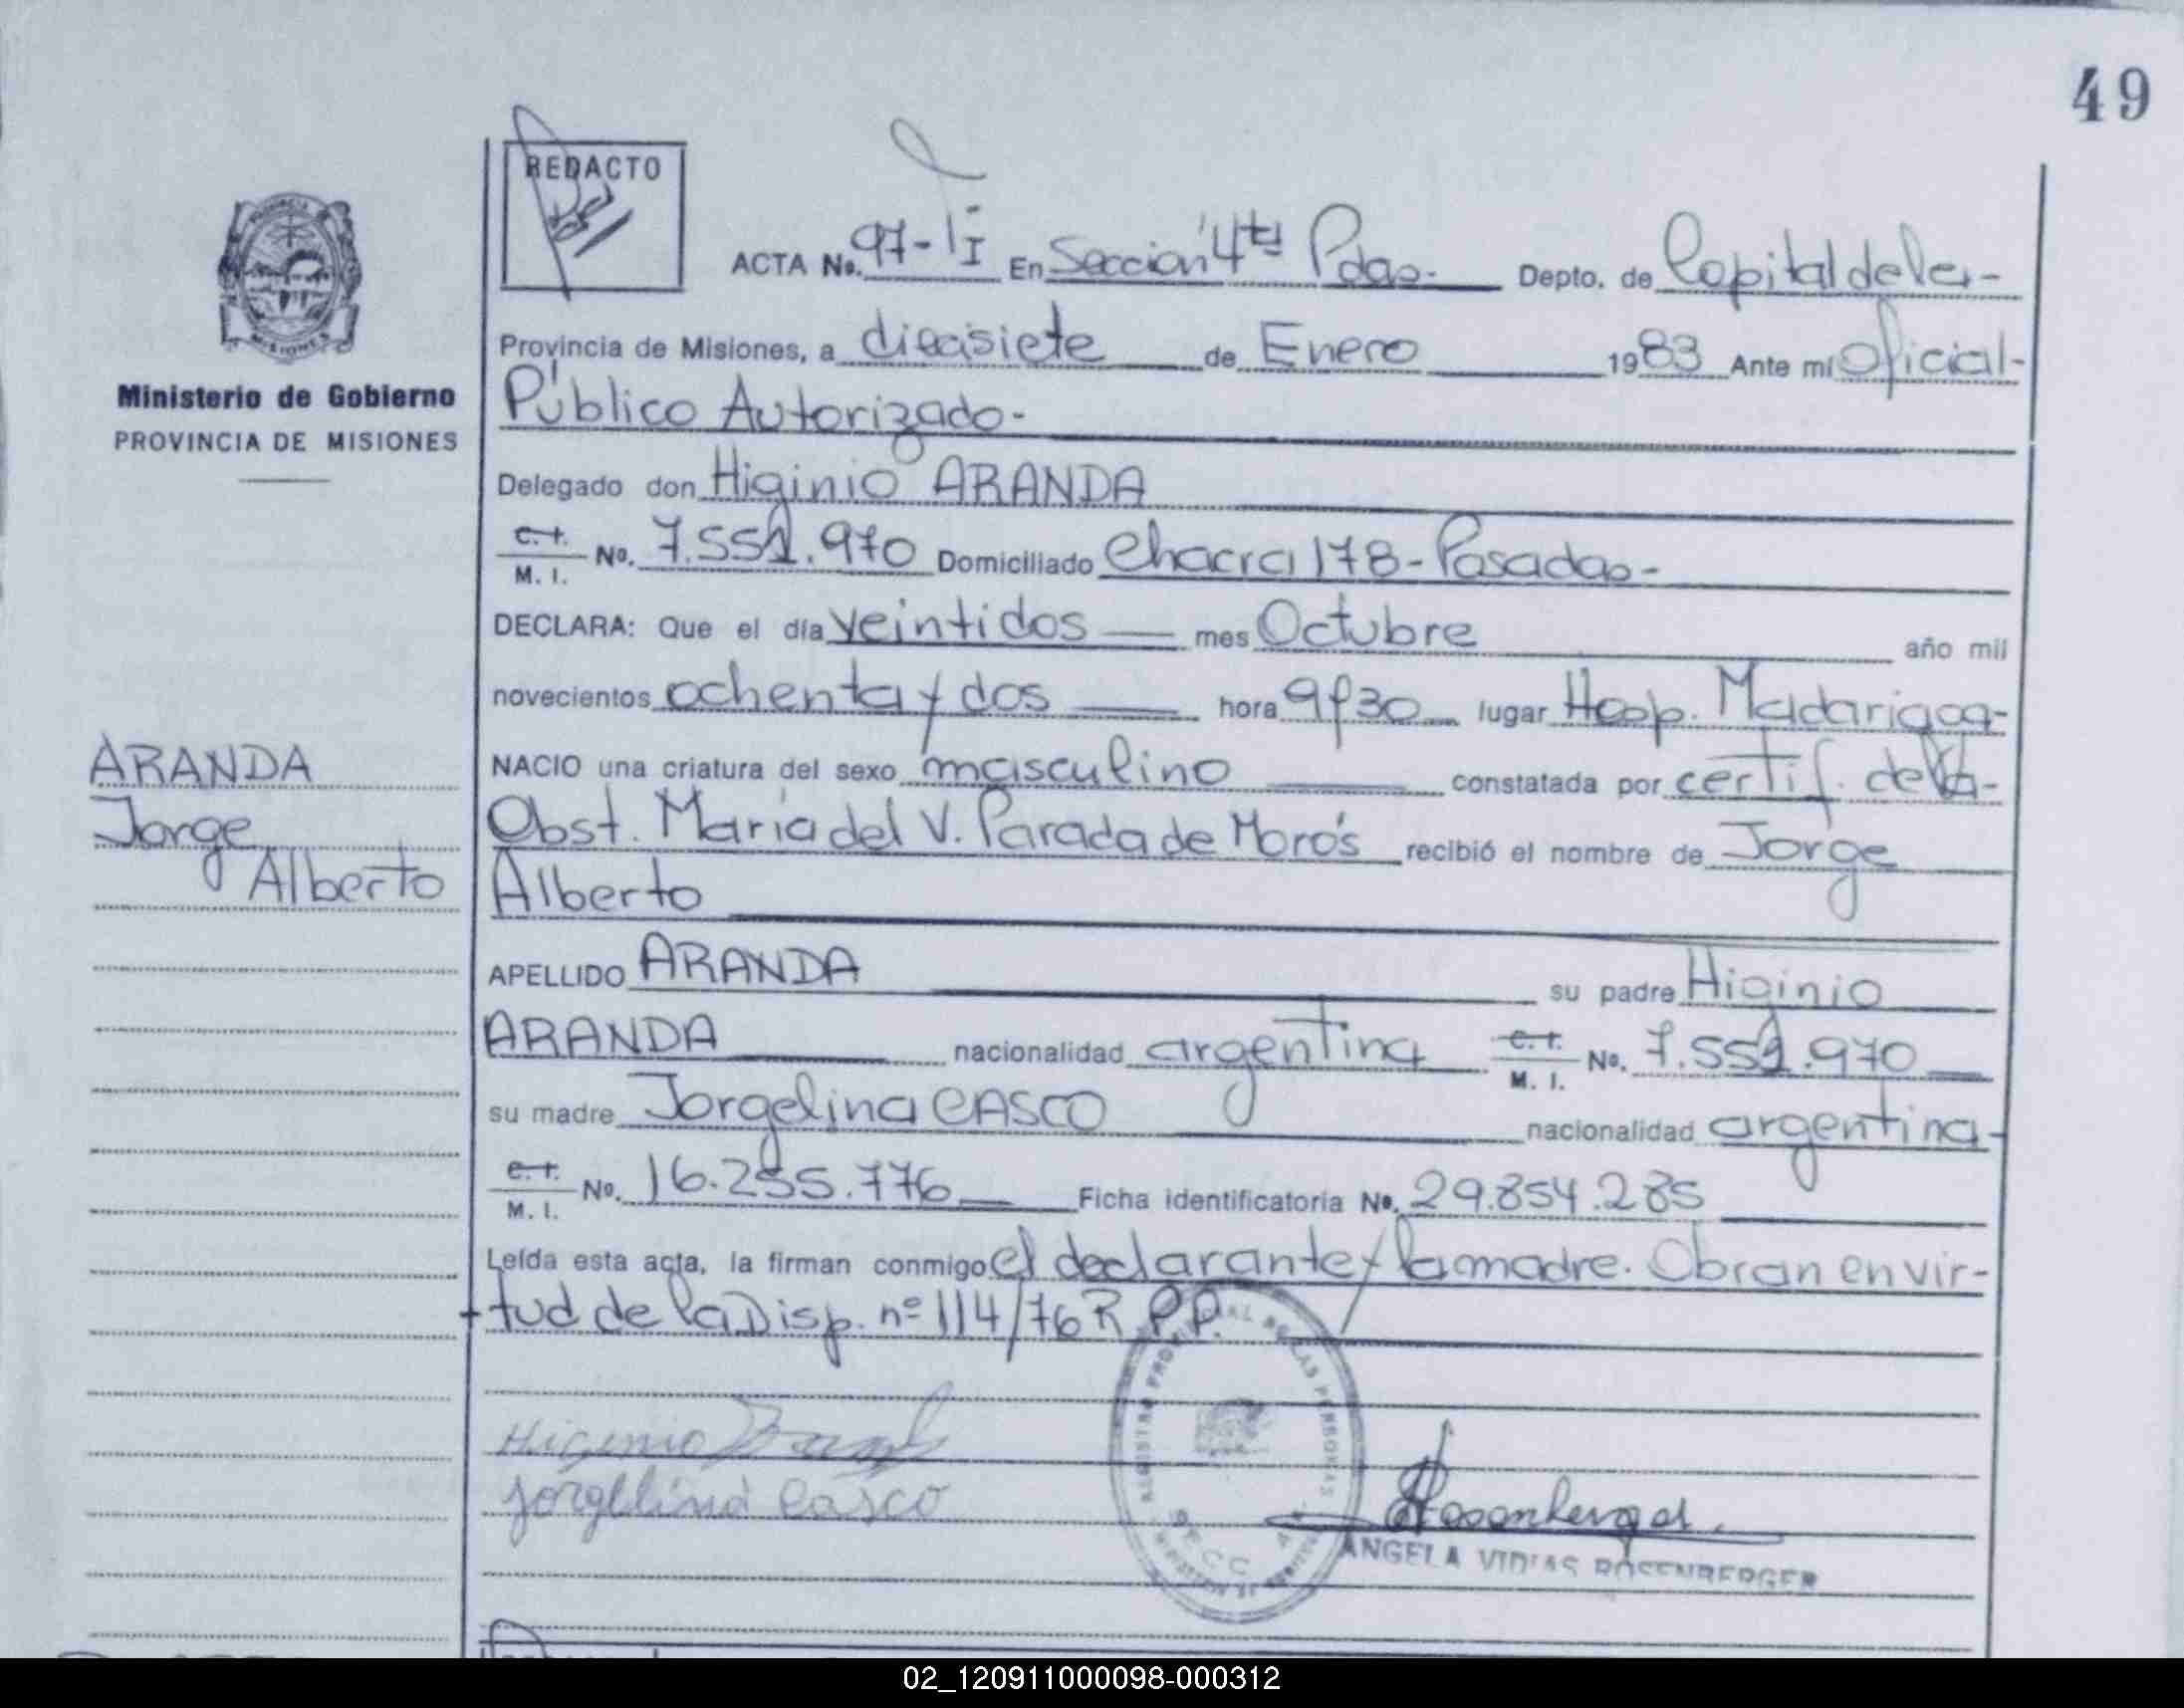 49
REDACTO
ACTA No. 97-TI En Sección 4ta Pdas.- Depto. de Capital de la-
Provincia de Misiones, a diecisiete de Enero 1983 Ante mí Oficial-
Ministerio de Gobierno
PROVINCIA DE MISIONES
Público Autorizado-
Delegado don Higinio ARANDA
C. I. M. I. No. 7.551.970 Domiciliado Chacra 178-Posadas-
DECLARA: Que el día veintidos mes Octubre año mil
novecientos ochenta y dos hora 9y30 lugar Hosp. Madariaga-
NACIO una criatura del sexo masculino constatada por certif. de la-
Obst. María del V. Parada de Morós recibió el nombre de Jorge
Alberto
ARANDA
Jorge
Alberto
APELLIDO ARANDA su padre Higinio
ARANDA nacionalidad argentina C. I. M. I. No. 7.551.970
su madre Jorgelina CASCO nacionalidad argentina-
C. I. M. I. No. 16.255.776 Ficha identificatoria No. 29.854.285
Leída esta acta, la firman conmigo el declarante y la madre. Obran en vir-
tud de la Disp. nº 114/76 R.P.P.
REGISTRO PROVINCIAL DE LAS PERSONAS
SECC. 4
Higinio Aranda
Jorgelina Casco
Rosenberger
ANGELA VIDIAS ROSENBERGER
02_120911000098-000312